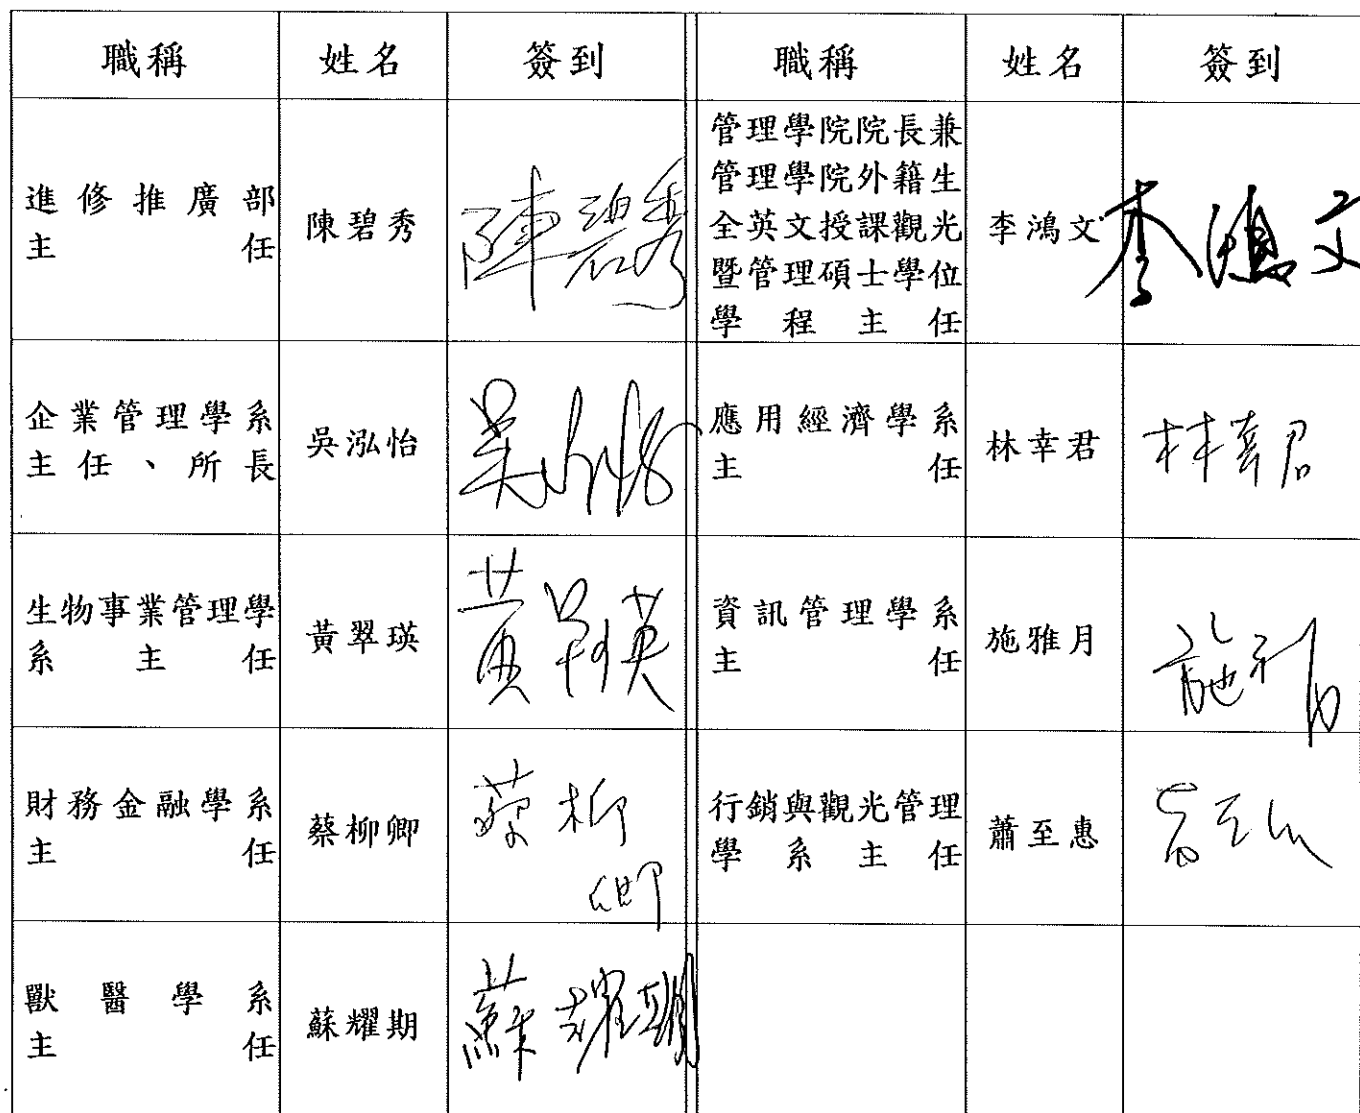 職稱 姓名 簽到 職稱 姓名 簽到
進修推廣部
主任
陳碧秀
陳碧秀
管理學院院長兼
管理學院外籍生
全英文授課觀光
暨管理碩士學位
學程主任
李鴻文
李鴻文
企業管理學系
主任、所長
吳泓怡
吳泓怡
應用經濟學系
主任
林幸君
林幸君
生物事業管理學
系主任
黃翠瑛
黃翠瑛
資訊管理學系
主任
施雅月
施雅月
財務金融學系
主任
蔡柳卿
蔡柳
卿
行銷與觀光管理
學系主任
蕭至惠
獸醫學系
主任
蘇耀期
蘇耀期